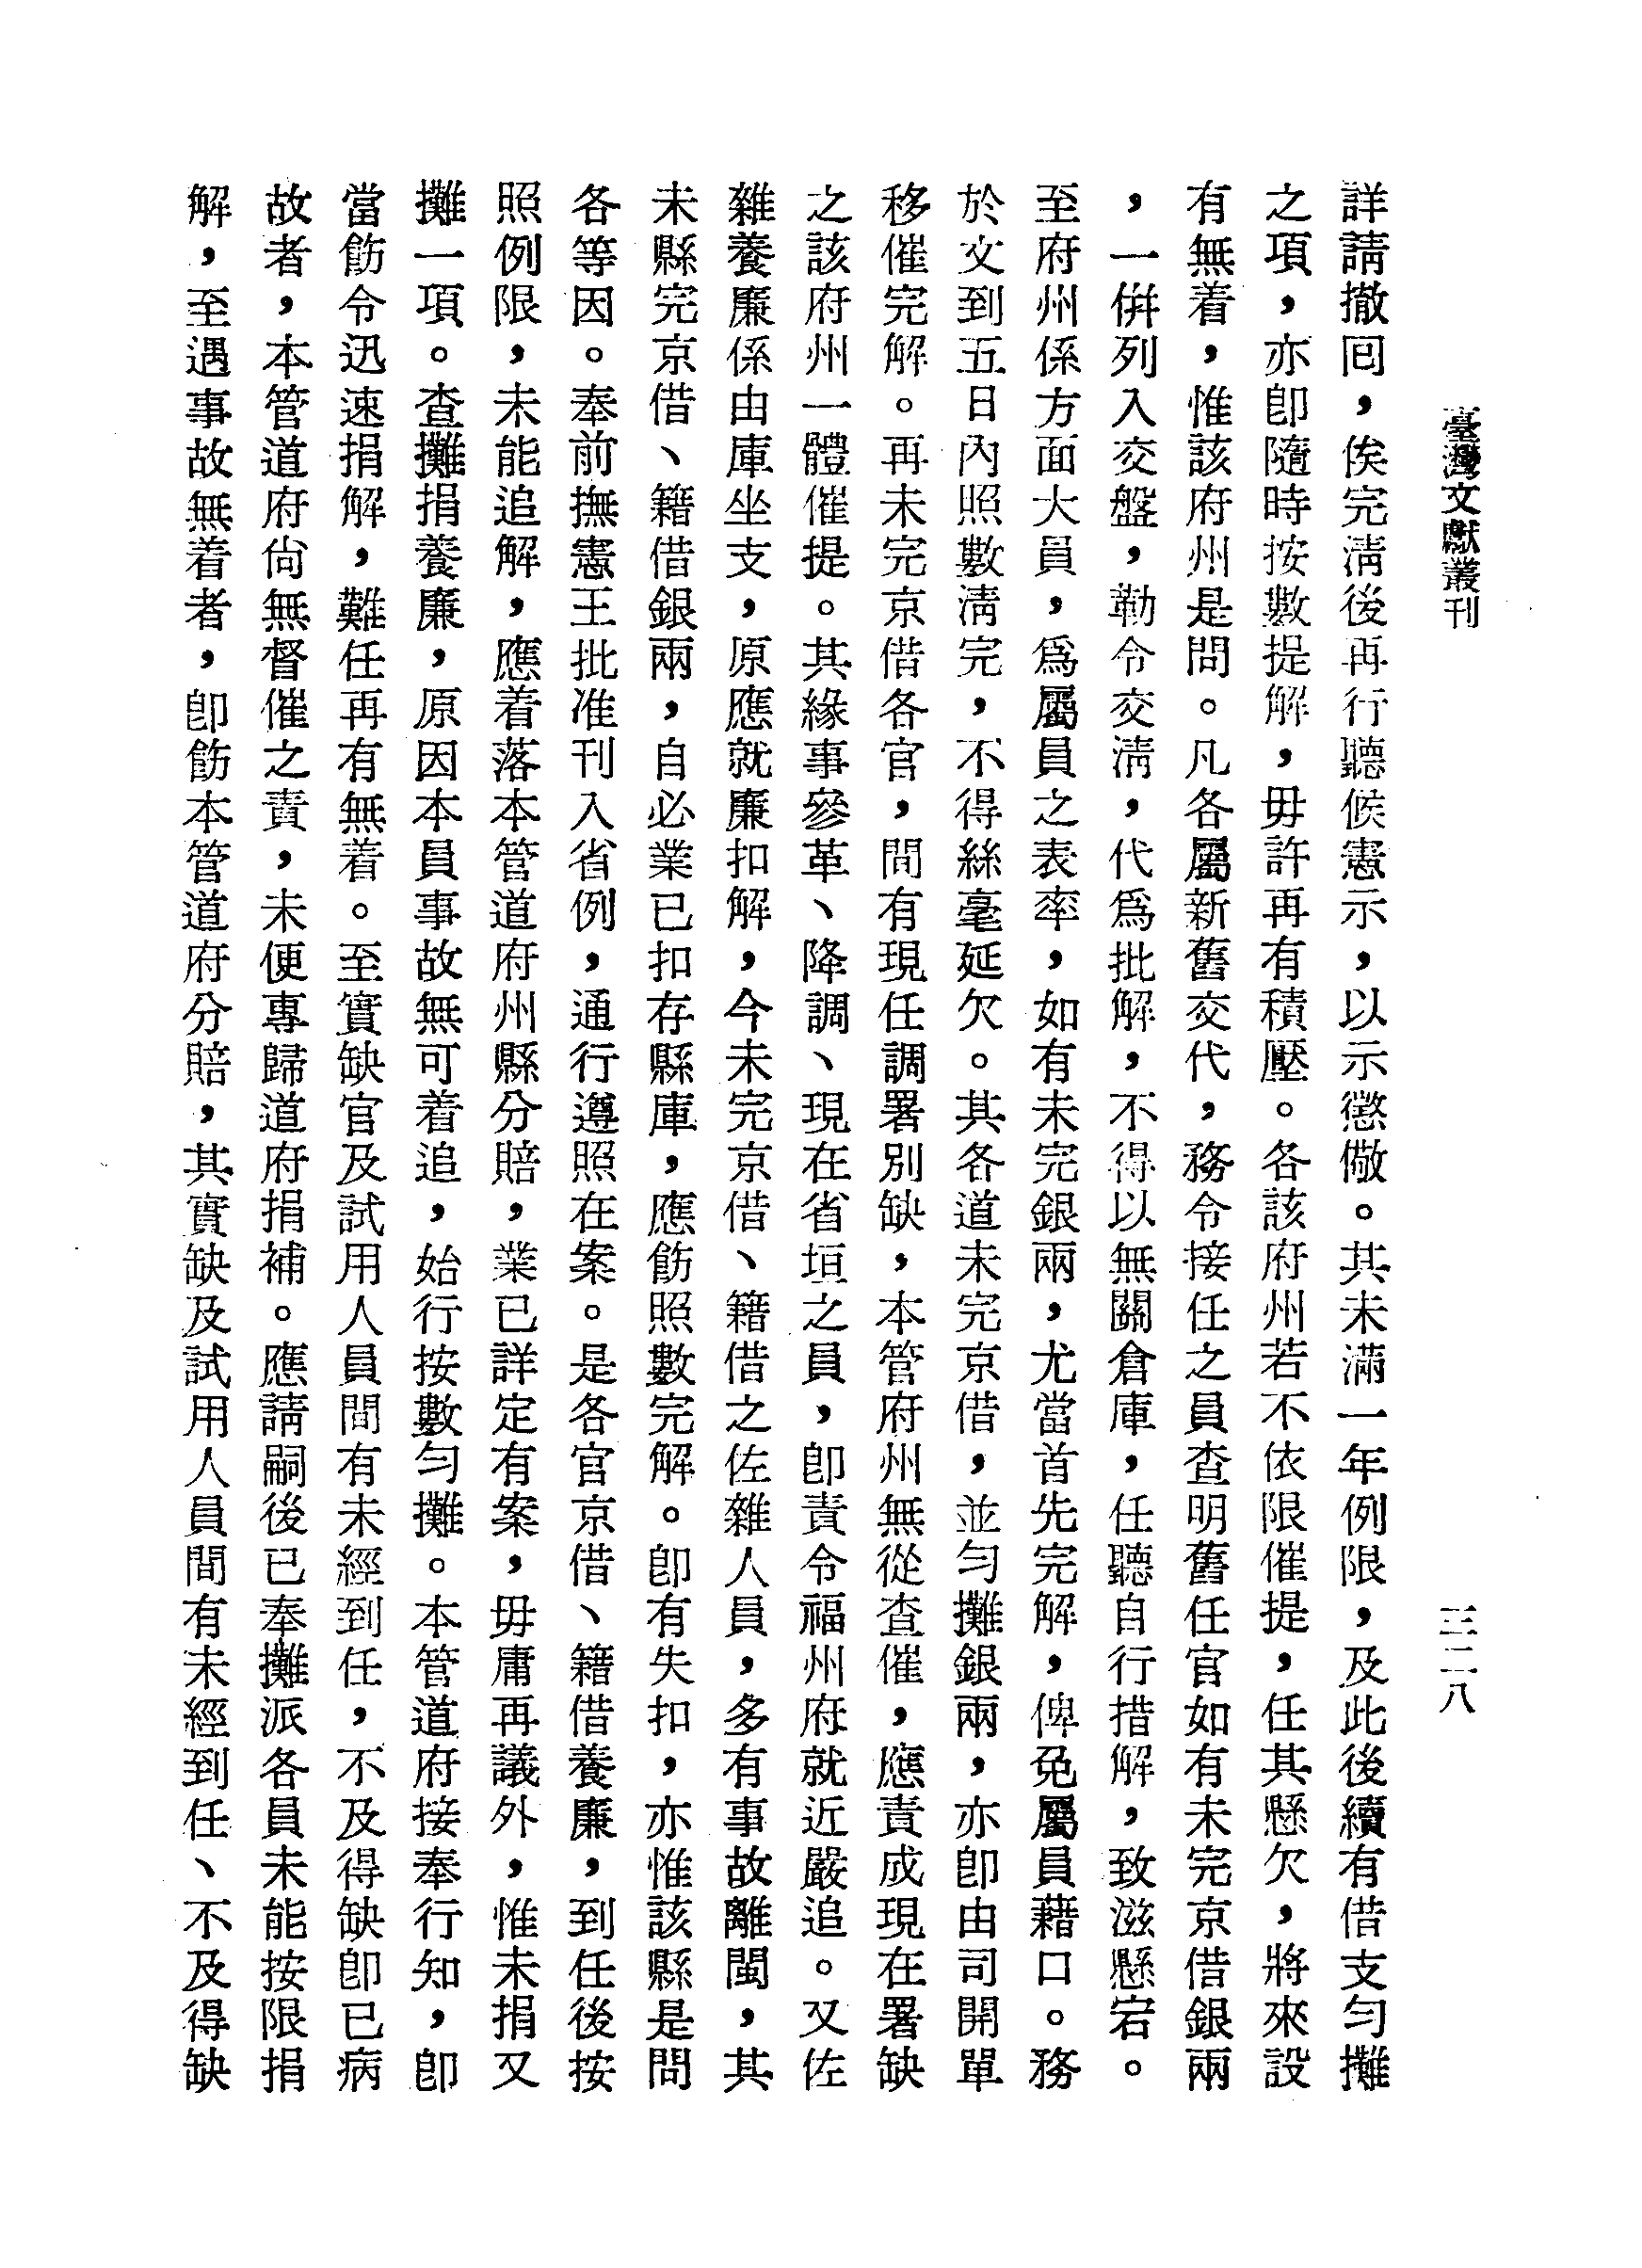 臺灣文獻叢刊
三二八
詳請撤囘，俟完淸後再行聽候憲示，以示懲儆。其未滿一年例限，及此後續有借支勻攤
之項，亦卽隨時按數提解，毋許再有積壓。各該府州若不依限催提，任其懸欠，將來設
有無着，惟該府州是問。凡各屬新舊交代，務令接任之員查明舊任官如有未完京借銀兩
，一併列入交盤，勒令交淸，代爲批解，不得以無關倉庫，任聽自行措解，致滋懸宕。
至府州係方面大員，爲屬員之表率，如有未完銀兩，尤當首先完解，俾免屬員藉口。務
於文到五日內照數淸完，不得絲毫延欠。其各道未完京借，並勻攤銀兩，亦卽由司開單
移催完解。再未完京借各官，間有現任調署別缺，本管府州無從查催，應責成現在署缺
之該府州一體催提。其緣事參革、降調、現在省垣之員，卽責令福州府就近嚴追。又佐
雜養廉係由庫坐支，原應就廉扣解，今未完京借、籍借之佐雜人員，多有事故離閩，其
未縣完京借、籍借銀兩，自必業已扣存縣庫，應飭照數完解。卽有失扣，亦惟該縣是問
各等因。奉前撫憲王批准刊入省例，通行遵照在案。是各官京借、籍借養廉，到任後按
照例限，未能追解，應着落本管道府州縣分賠，業已詳定有案，毋庸再議外，惟未捐又
攤一項。查攤捐養廉，原因本員事故無可着追，始行按數勻攤。本管道府接奉行知，卽
當飭令迅速捐解，難任再有無着。至實缺官及試用人員間有未經到任，不及得缺卽已病
故者，本管道府尙無督催之責，未便專歸道府捐補。應請嗣後已奉攤派各員未能按限捐
解，至遇事故無着者，卽飭本管道府分賠，其實缺及試用人員間有未經到任、不及得缺